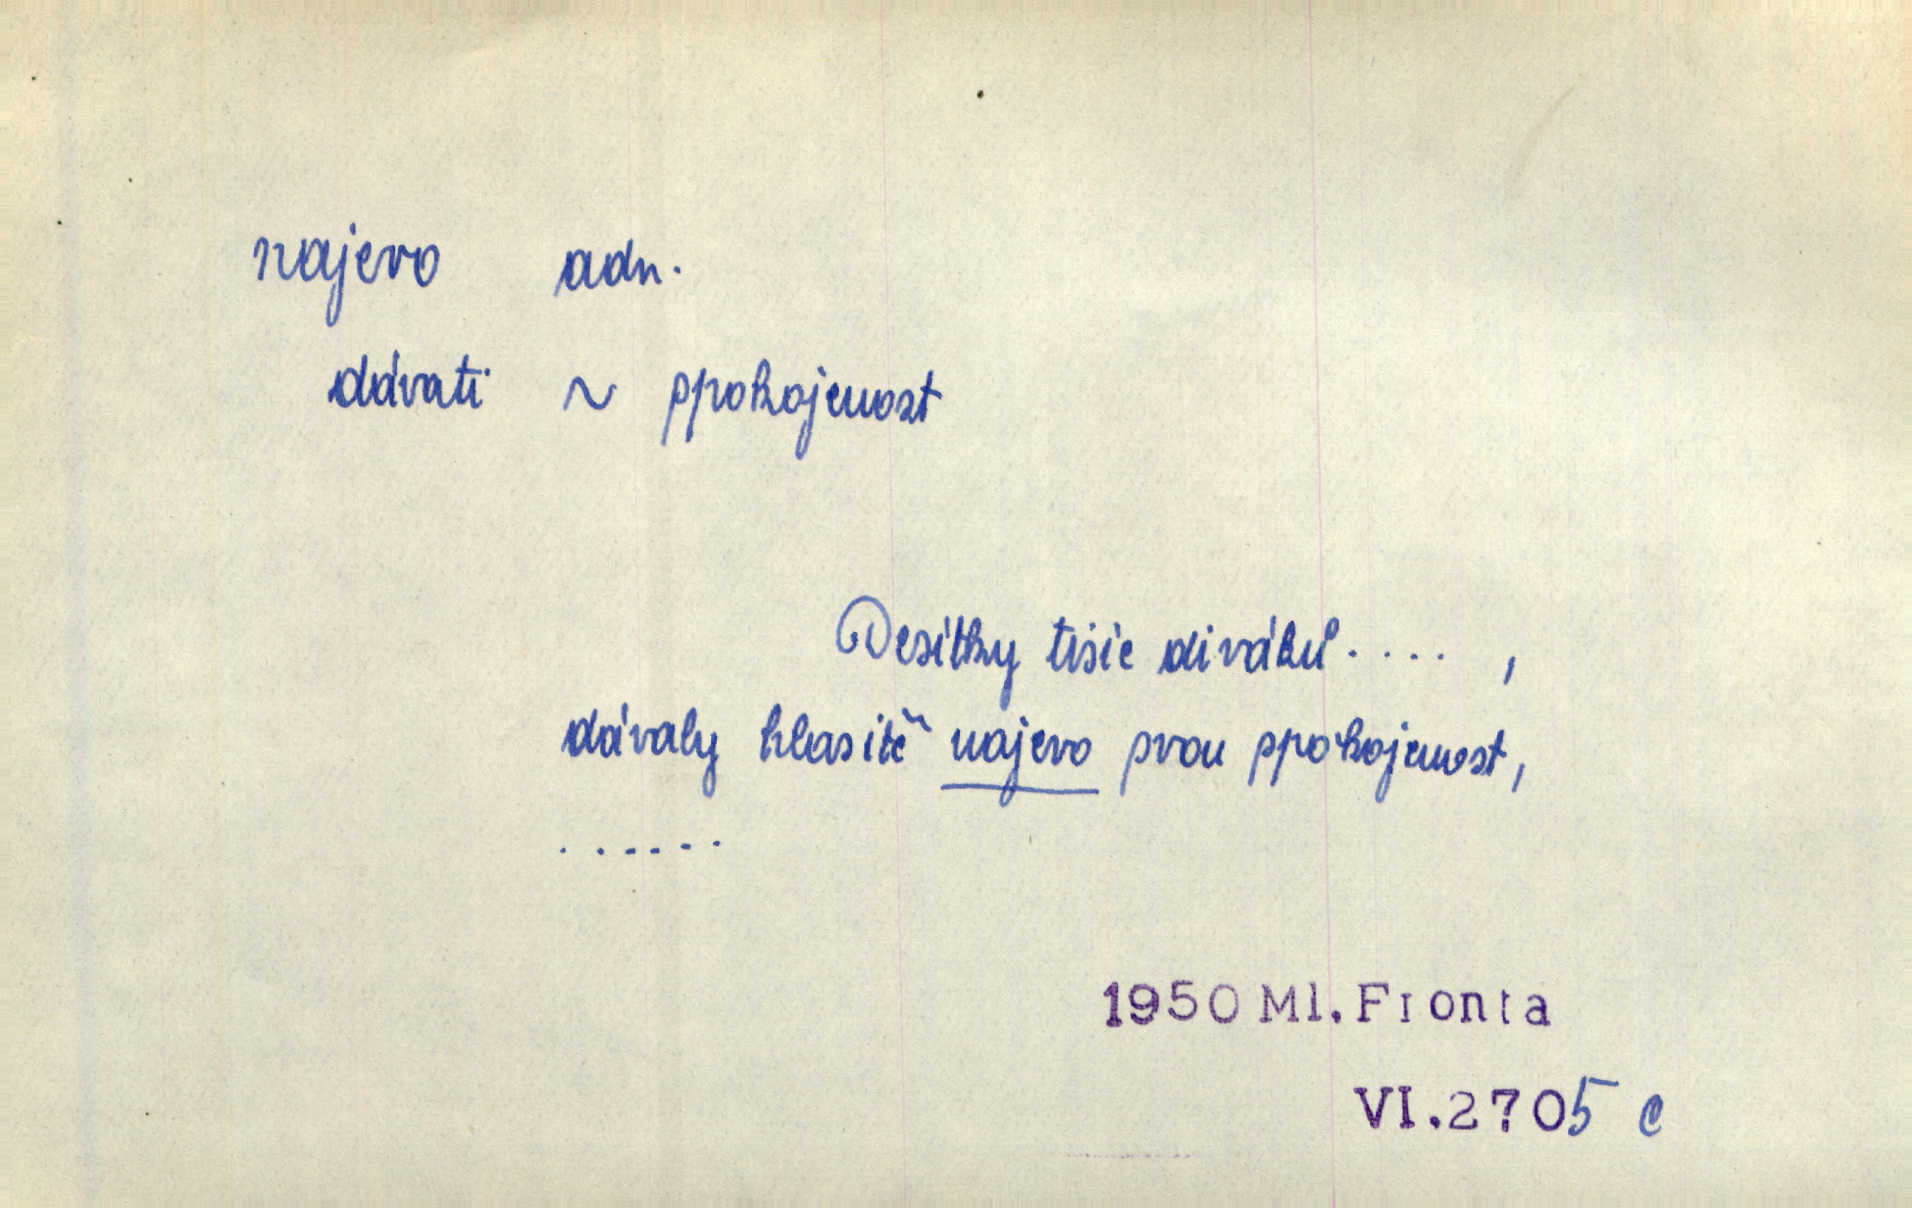 najevo adv.
dávati ~ spokojenost
Desítky tisíc diváků. . . . ,
dávaly hlasitě najevo svou spokojenost,
. . . . . .
1950 Ml. Fronta
VI.2705 c